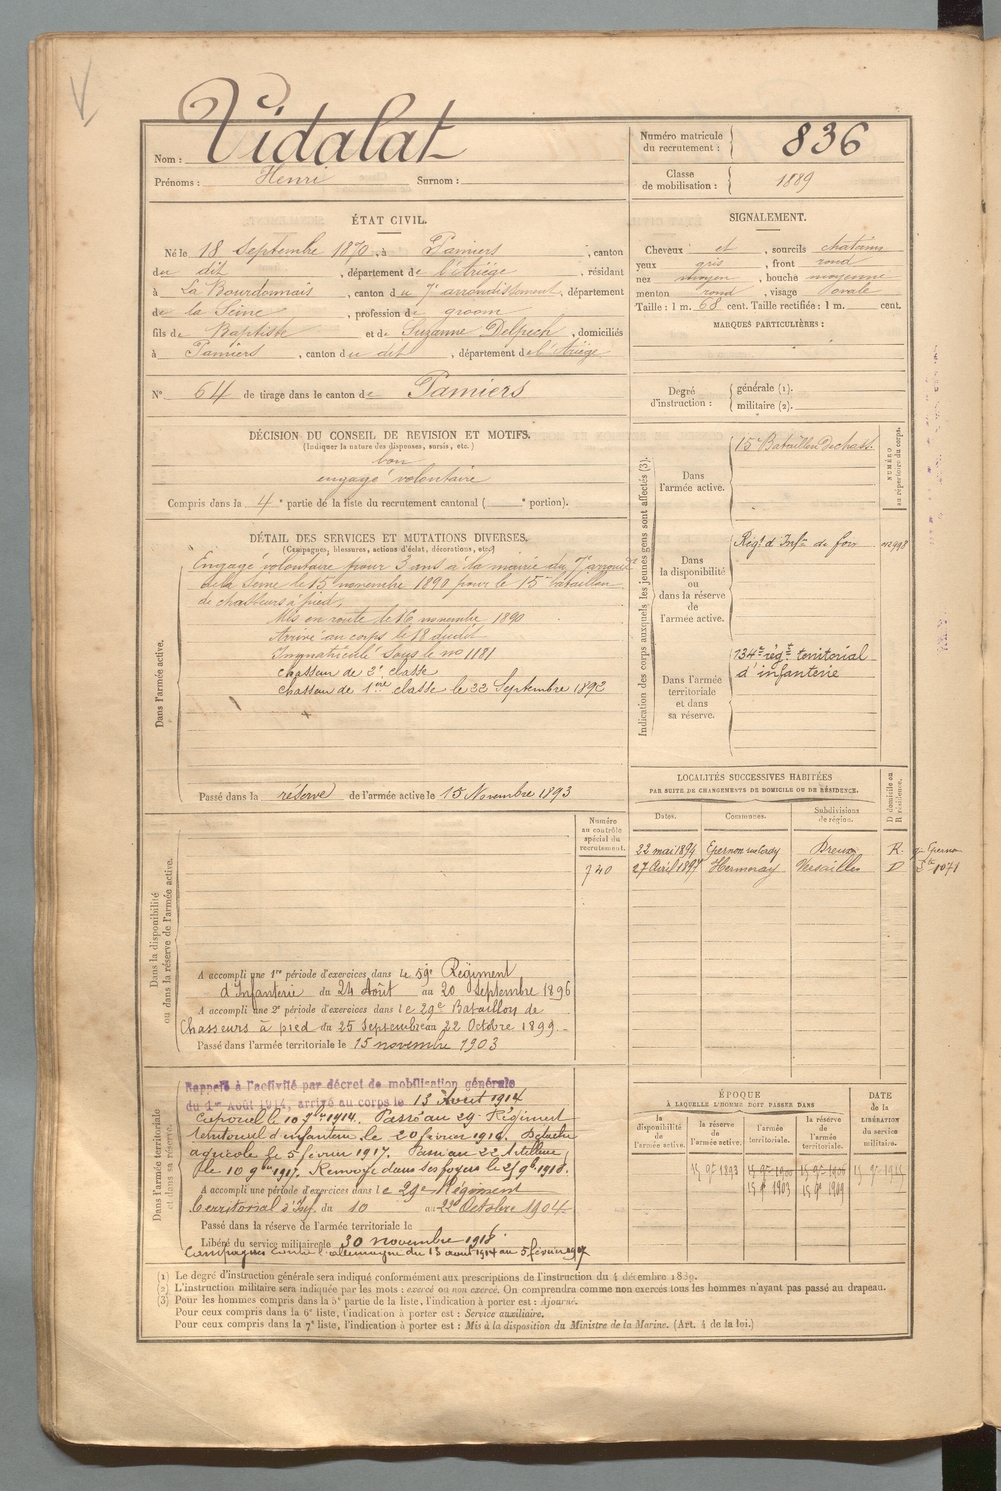 V
Nom : Vidalat
Prénoms : Henri Surnom :
Numéro matricule du recrutement : 836
Classe de mobilisation : 1889
ÉTAT CIVIL.
Né le 18 Septembre 1870, à Pamiers, canton
du dit, département de l'Ariège, résidant
à La Bourdonnais, canton du 7e arrondissement, département
de la Seine, profession de groom
fils de Baptiste et de Suzanne Delpech, domiciliés
à Pamiers, canton du dit, département de l'Ariège
N° 64 de tirage dans le canton de Pamiers
SIGNALEMENT.
Cheveux et, sourcils chatains
yeux gris, front rond
nez moyen, bouche moyenne
menton rond, visage ovale
Taille : 1 m. 68 cent. Taille rectifiée : 1 m. cent.
MARQUES PARTICULIÈRES :
Degré d'instruction : générale (1).
militaire (2).
DÉCISION DU CONSEIL DE REVISION ET MOTIFS.
(Indiquer la nature des dispenses, sursis, etc.)
bon
engagé volontaire
Compris dans la 4e partie de la liste du recrutement cantonal ( e portion).
DÉTAIL DES SERVICES ET MUTATIONS DIVERSES.
(Campagnes, blessures, actions d'éclat, décorations, etc.)
Dans l'armée active.
Engagé volontaire pour 3 ans à la mairie du 7e arrondt
de la Seine le 15 novembre 1890 pour le 15e bataillon
de chasseurs à pied.
Mis en route le 16 novembre 1890
Arrivé au corps le 18 dudit
Immatriculé sous le no 1181
chasseur de 2e classe
chasseur de 1ère classe le 22 Septembre 1892
Passé dans la réserve de l'armée active le 15 Novembre 1893
Indication des corps auxquels les jeunes gens sont affectés (3).
NUMÉRO au répertoire du corps.
Dans l'armée active.
15e Bataillon de chass.
Dans la disponibilité ou dans la réserve de l'armée active.
Régt d'Infie de
Dans l'armée territoriale et dans sa réserve.
134e régt territorial
d'infanterie
LOCALITÉS SUCCESSIVES HABITÉES
PAR SUITE DE CHANGEMENTS DE DOMICILE OU DE RÉSIDENCE.
Dates. Communes. Subdivisions de région. D domicile ou R résidence.
22 mai 1894 Epernon Dreux R.
27 Avril 1897 Hermeray Versailles D
Dans la disponibilité ou dans la réserve de l'armée active.
Numéro au contrôle spécial du recrutement.
740
A accompli une 1re période d'exercices dans le 59e Régiment
d'Infanterie du 24 Août au 20 Septembre 1896
A accompli une 2e période d'exercices dans le 29e Bataillon de
Chasseurs à pied du 25 Septembre au 22 Octobre 1899
Passé dans l'armée territoriale le 15 novembre 1903
Dans l'armée territoriale et dans sa réserve.
Rappelé à l'activité par décret de mobilisation générale
du 1er Août 1914, arrivé au corps le 13 Août 1914
Caporal le 10 7bre 1914. Passé au 29 Régiment
territorial d'infanterie le 20 février 1916. Détaché
agricole le 5 février 1917. Passé au 22 Artillerie
le 10 9bre 1917. Renvoyé dans ses foyers le
A accompli une période d'exercices dans le 29e Régiment
territorial d'Inf. du 10 au 22 Octobre 1904
Passé dans la réserve de l'armée territoriale le
Libéré du service militaire le 30 novembre 1918
Campagnes contre l'allemagne du 13 août 1914 au 5 février 1917
ÉPOQUE
À LAQUELLE L'HOMME DOIT PASSER DANS
la disponibilité de l'armée active. la réserve de l'armée active. l'armée territoriale. la réserve de l'armée territoriale.
DATE de la LIBÉRATION du service militaire.
15 9e 1893 15 9e 1900 15 9e 1906 15 9e 1915
15 9e 1903 15 9e 1909
(1) Le degré d'instruction générale sera indiqué conformément aux prescriptions de l'instruction du 4 décembre 1889.
(2) L'instruction militaire sera indiquée par les mots : exercé ou non exercé. On comprendra comme non exercés tous les hommes n'ayant pas passé au drapeau.
(3) Pour les hommes compris dans la 5e partie de la liste, l'indication à porter est : Ajourné.
Pour ceux compris dans la 6e liste, l'indication à porter est : Service auxiliaire.
Pour ceux compris dans la 7e liste, l'indication à porter est : Mis à la disposition du Ministre de la Marine. (Art. 4 de la loi.)